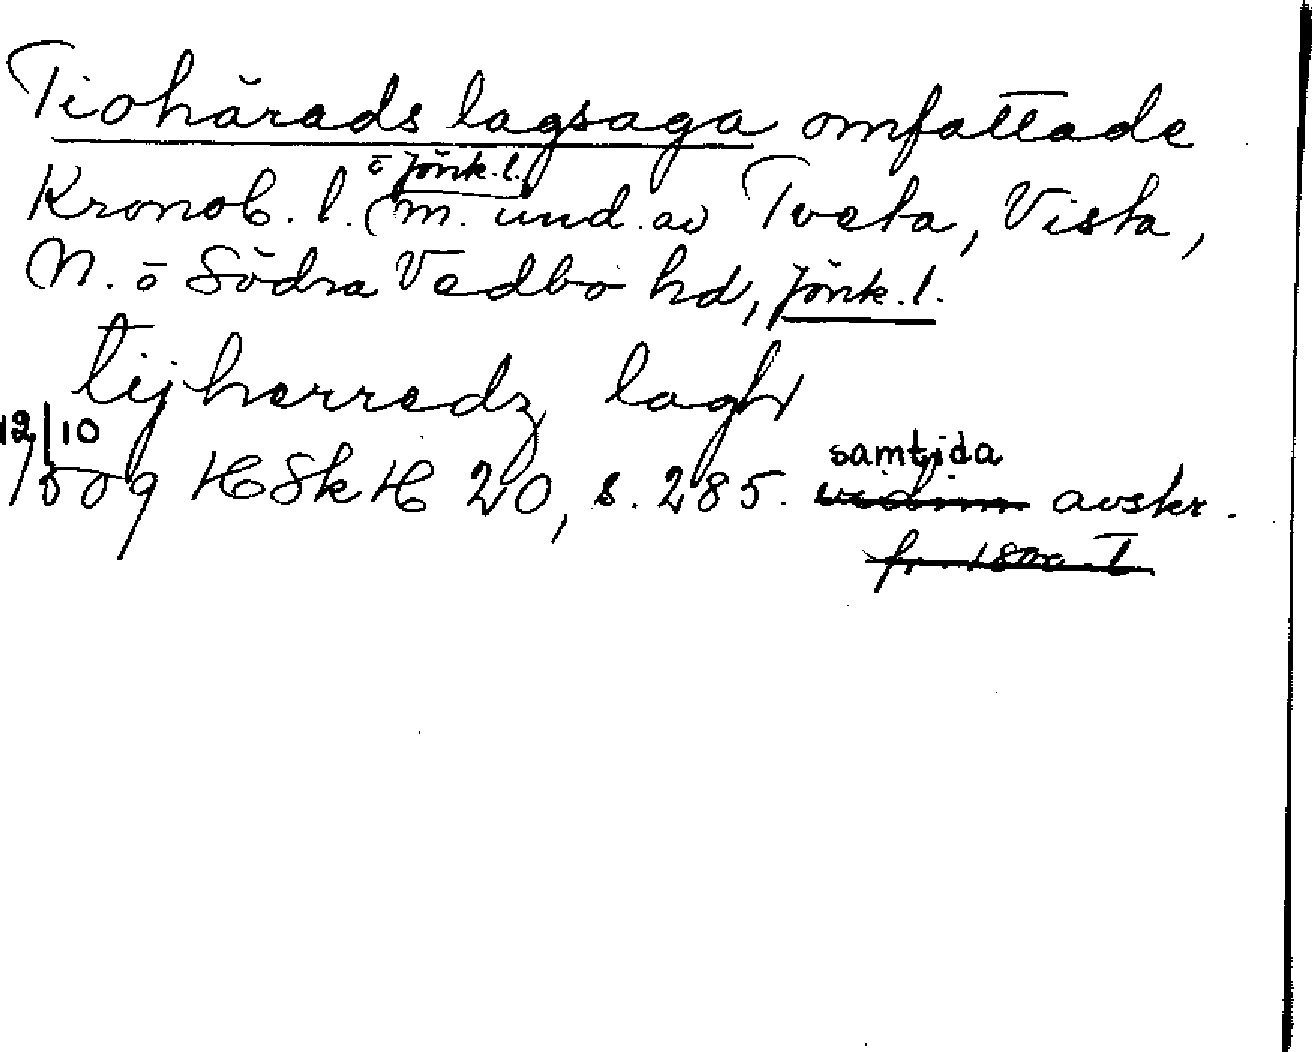 Tiohärads lagsaga omfattade
Kronob. l. ō Jönk. l. (m. und. av Tveta, Vista,
N. ō Södra Vedbo hd, Jönk. l.
tijherredz lagh
12/10
1509 HSkH 20, s. 285. samtida vidim avskr.
fr. 1500-T